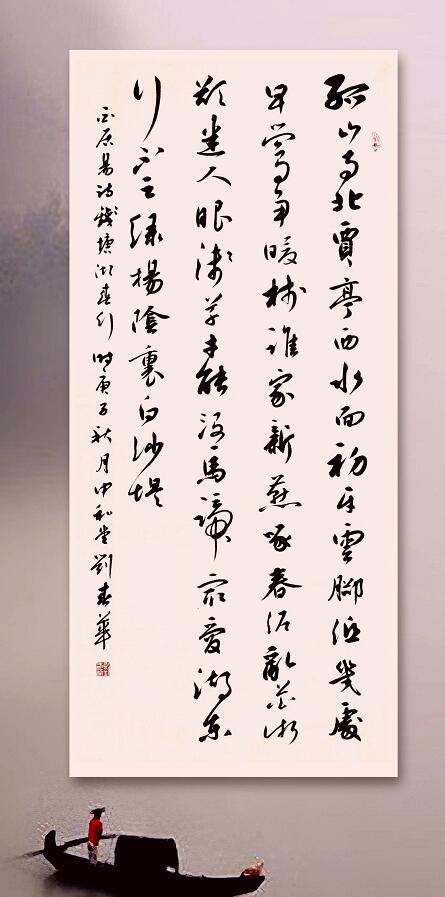 孤山寺北賈亭西水面初平雲腳低幾處
早鶯爭暖樹誰家新燕啄春泥亂花漸
欲迷人眼淺草才能沒馬蹄最愛湖東
行不足綠楊陰裏白沙堤
白居易詩錢塘湖春行 時庚子秋月中和堂劉春華